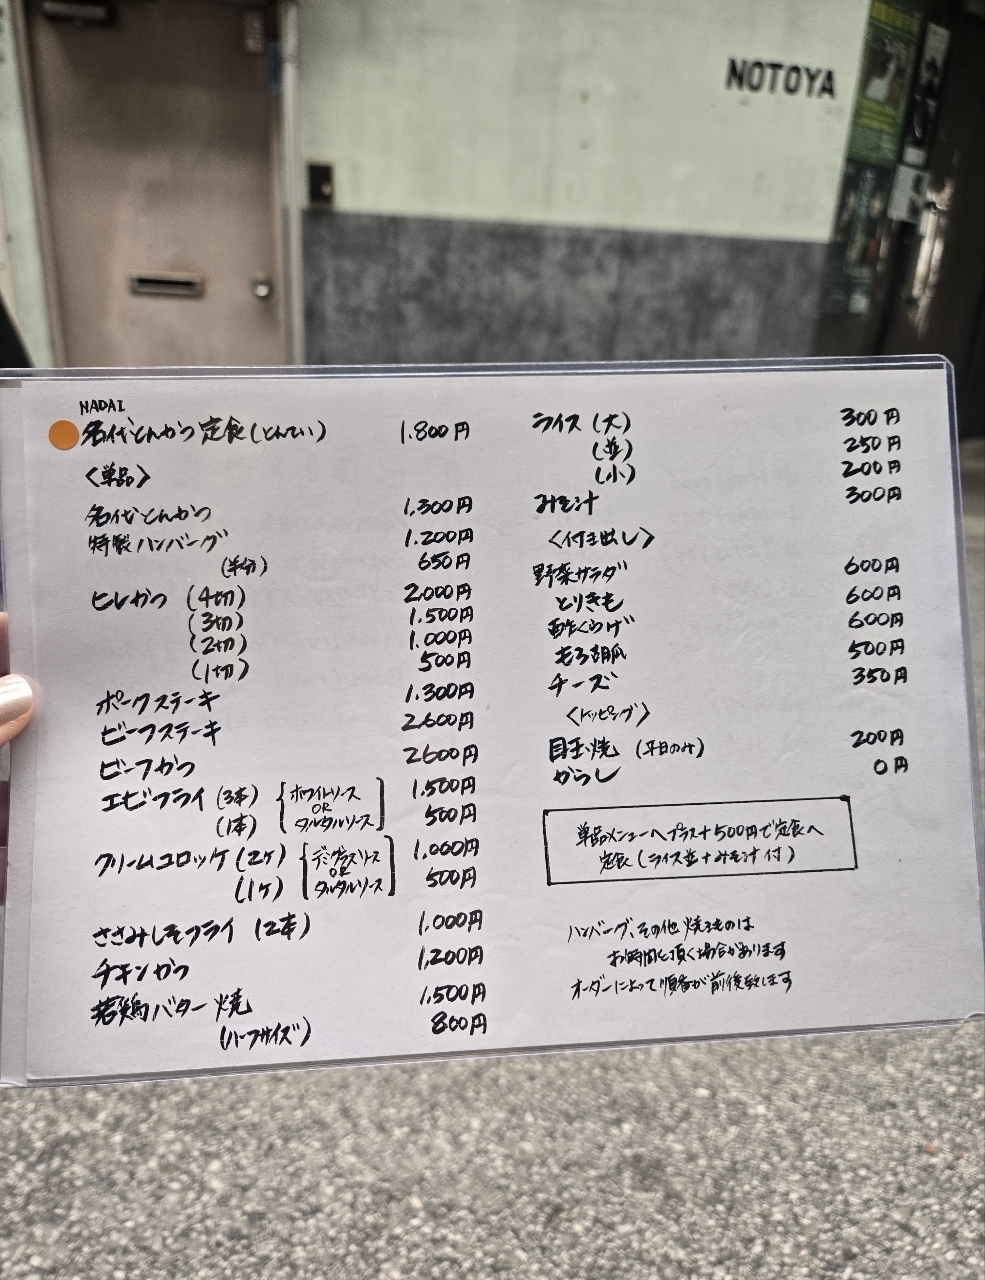 NOTOYA
NADAI
名代とんかつ定食(とんてい) 1.800円
<単品>
名代とんかつ 1,300円
特製ハンバーグ 1.200円
(半分) 650円
ヒレかつ (4切) 2,000円
(3切) 1.500円
(2切) 1.000円
(1切) 500円
ポークステーキ 1.300円
ビーフステーキ 2.600円
ビーフかつ 2600円
エビフライ (3本) 1.500円
(1本) 500円
ホワイトソース
OR
タルタルソース
クリームコロッケ (2ケ) 1,000円
(1ケ) 500円
デミグラスソース
OR
タルタルソース
ささみしそフライ (2本) 1.000円
チキンかつ 1,200円
若鶏バター焼 1,500円
(ハーフサイズ) 800円
ライス (大) 300円
(並) 250円
(小) 200円
みそ汁 300円
<付き出し>
野菜サラダ 600円
とりきも 600円
酢くらげ 600円
もろ胡瓜 500円
チーズ 350円
<トッピング>
目玉焼 (平日のみ) 200円
からし 0円
単品メニューへプラス+500円で定食へ
定食(ライス並+みそ汁付)
ハンバーグ、その他焼きものは
お時間を頂く場合があります
オーダーによって順番が前後致します